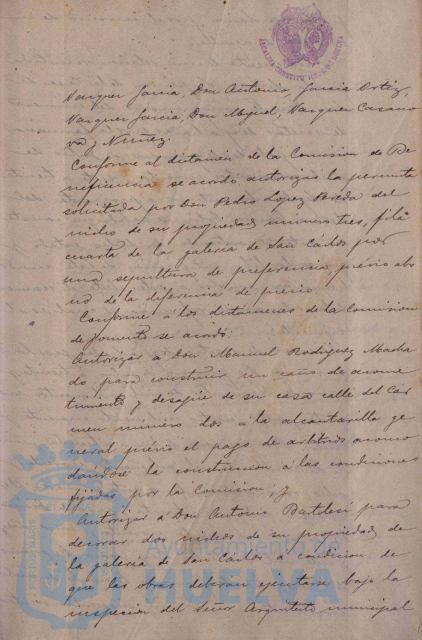 Vazquez Garcia, Don Antonio, Garcia Ortiz,
Vazquez Garcia, Don Miguel, Vazquez Casano
va y Nuñez.
Conforme al dictamen de la Comision de Be
neficencia se acordó autorizar la permuta
solicitada por Don Pedro Lopez Pereda del
nicho de su propiedad número tres, fila
cuarta de la galeria de San Cárlos por
una sepultura de preferencia prévio abo
no de la diferencia de precio.
Conforme á los dictámenes de la Comision
de Fomento se acordó:
Autorizar á Don Manuel Rodriguez Macha
do para construir un caño de acome
timiento y desagüe de su casa calle del Car
men número dos á la alcantarilla ge
neral prévio el pago de arbitrios acomo
dándose la construccion á las condiciones
fijadas por la Comision, y
Autorizar á Don Antonio para
decorar dos nichos de su propiedad de
la galeria de San Cárlos á condicion de
que las obras deberán ejecutarse bajo la
inspeccion del Señor Arquitecto municipal
Ayuntamiento de
HUELVA